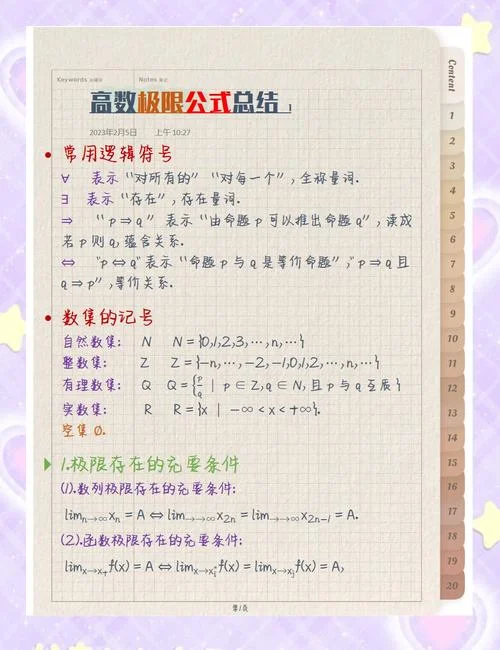 Keywords 关键词 Notes 笔记
高数极限公式总结 1
2023年2月5日 上午 10:27
• 常用逻辑符号
∀ 表示“对所有的”“对每一个”,全称量词.
∃ 表示“存在”,存在量词.
⇒ “p⇒q”表示“由命题p可以推出命题q”,读成
若p则q,蕴含关系.
⇔ “p⇔q”表示“命题p与q是等价命题”,“p⇒q且
q⇒p”,等价关系.
• 数集的记号
自然数集: N N={0,1,2,3,…,n,…}
整数集: Z Z={-n,…,-2,-1,0,1,2,…,n,…}
有理数集: Q Q={p/q | p∈Z,q∈N,且p与q互质}
实数集: R R={x | -∞<x<+∞}.
空集 Ø.
1.极限存在的充要条件
(1).数列极限存在的充要条件:
limₙ→∞xₙ = A ⇔ lim→∞x₂ₙ = lim→∞x₂ₙ₋₁ = A.
(2).函数极限存在的充要条件:
第1页
Content
1
2
3
4
5
6
7
8
9
10
11
12
13
14
15
16
17
18
19
20